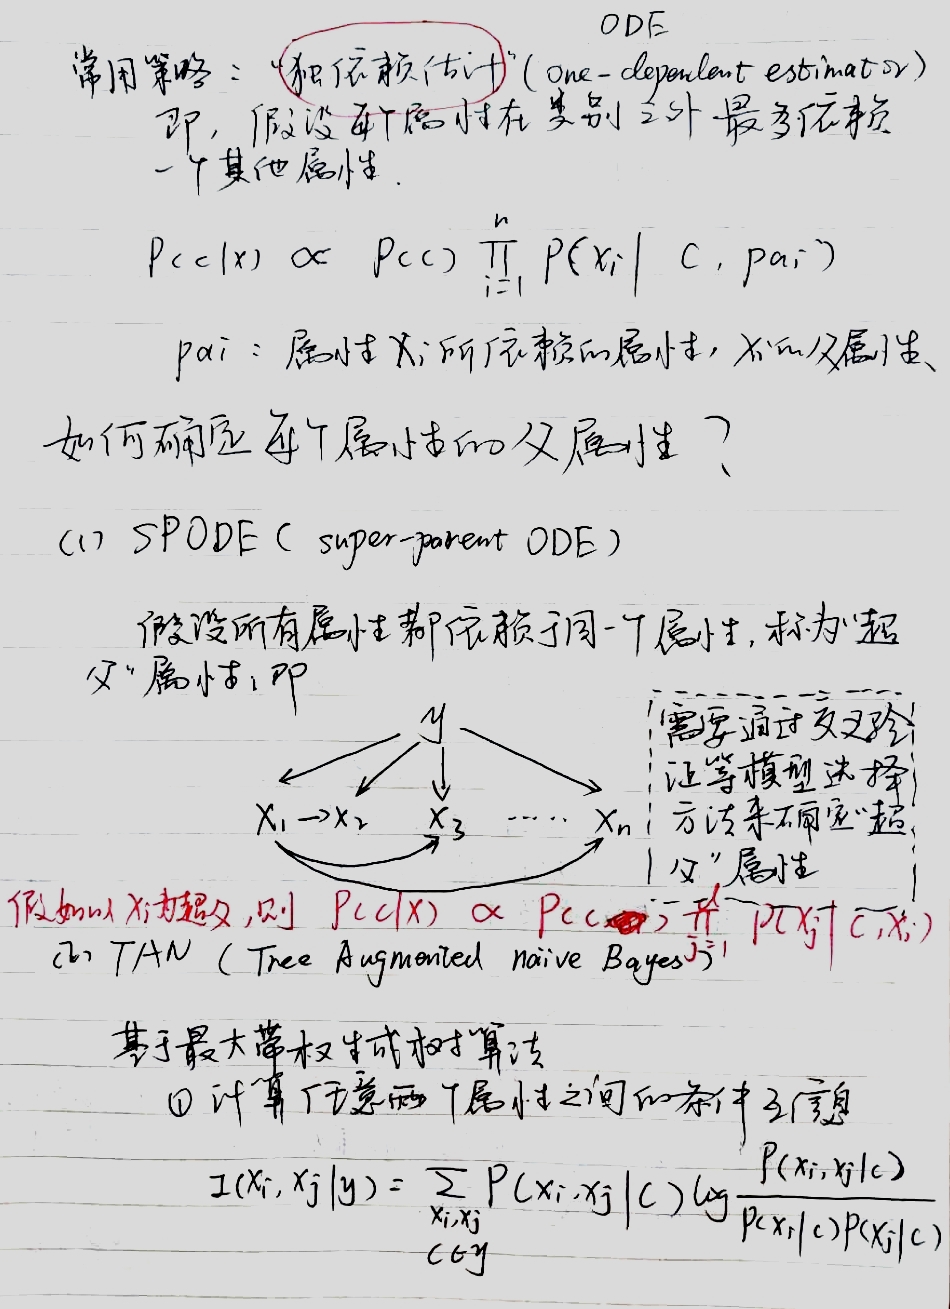 ODE
常用策略："独依赖估计"(one-dependent estimator)
即，假设每个属性在类别之外最多依赖
一个其他属性.
P(c|x) ∝ P(c) ∏_{i=1}^{n} P(x_i | c, pa_i)
pa_i：属性x_i所依赖的属性，x_i的父属性、
如何确定每个属性的父属性？
(1) SPODE (super-parent ODE)
假设所有属性都依赖于同一个属性，称为"超
父"属性，即
y
x_1 → x_2 x_3 ····· x_n
需要通过交叉验
证等模型选择
方法来确定"超
父"属性
假如以x_i为超父，则 P(c|x) ∝ P(c ) ∏_{j=1}^{d} P(x_j | c, x_i)
(2) TAN (Tree Augmented naive Bayes)
基于最大带权生成树算法
① 计算任意两个属性之间的条件互信息
I(x_i, x_j | y) = ∑_{x_i, x_j c∈y} P(x_i, x_j | c) log P(x_i, x_j | c) / P(x_i | c) P(x_j | c)